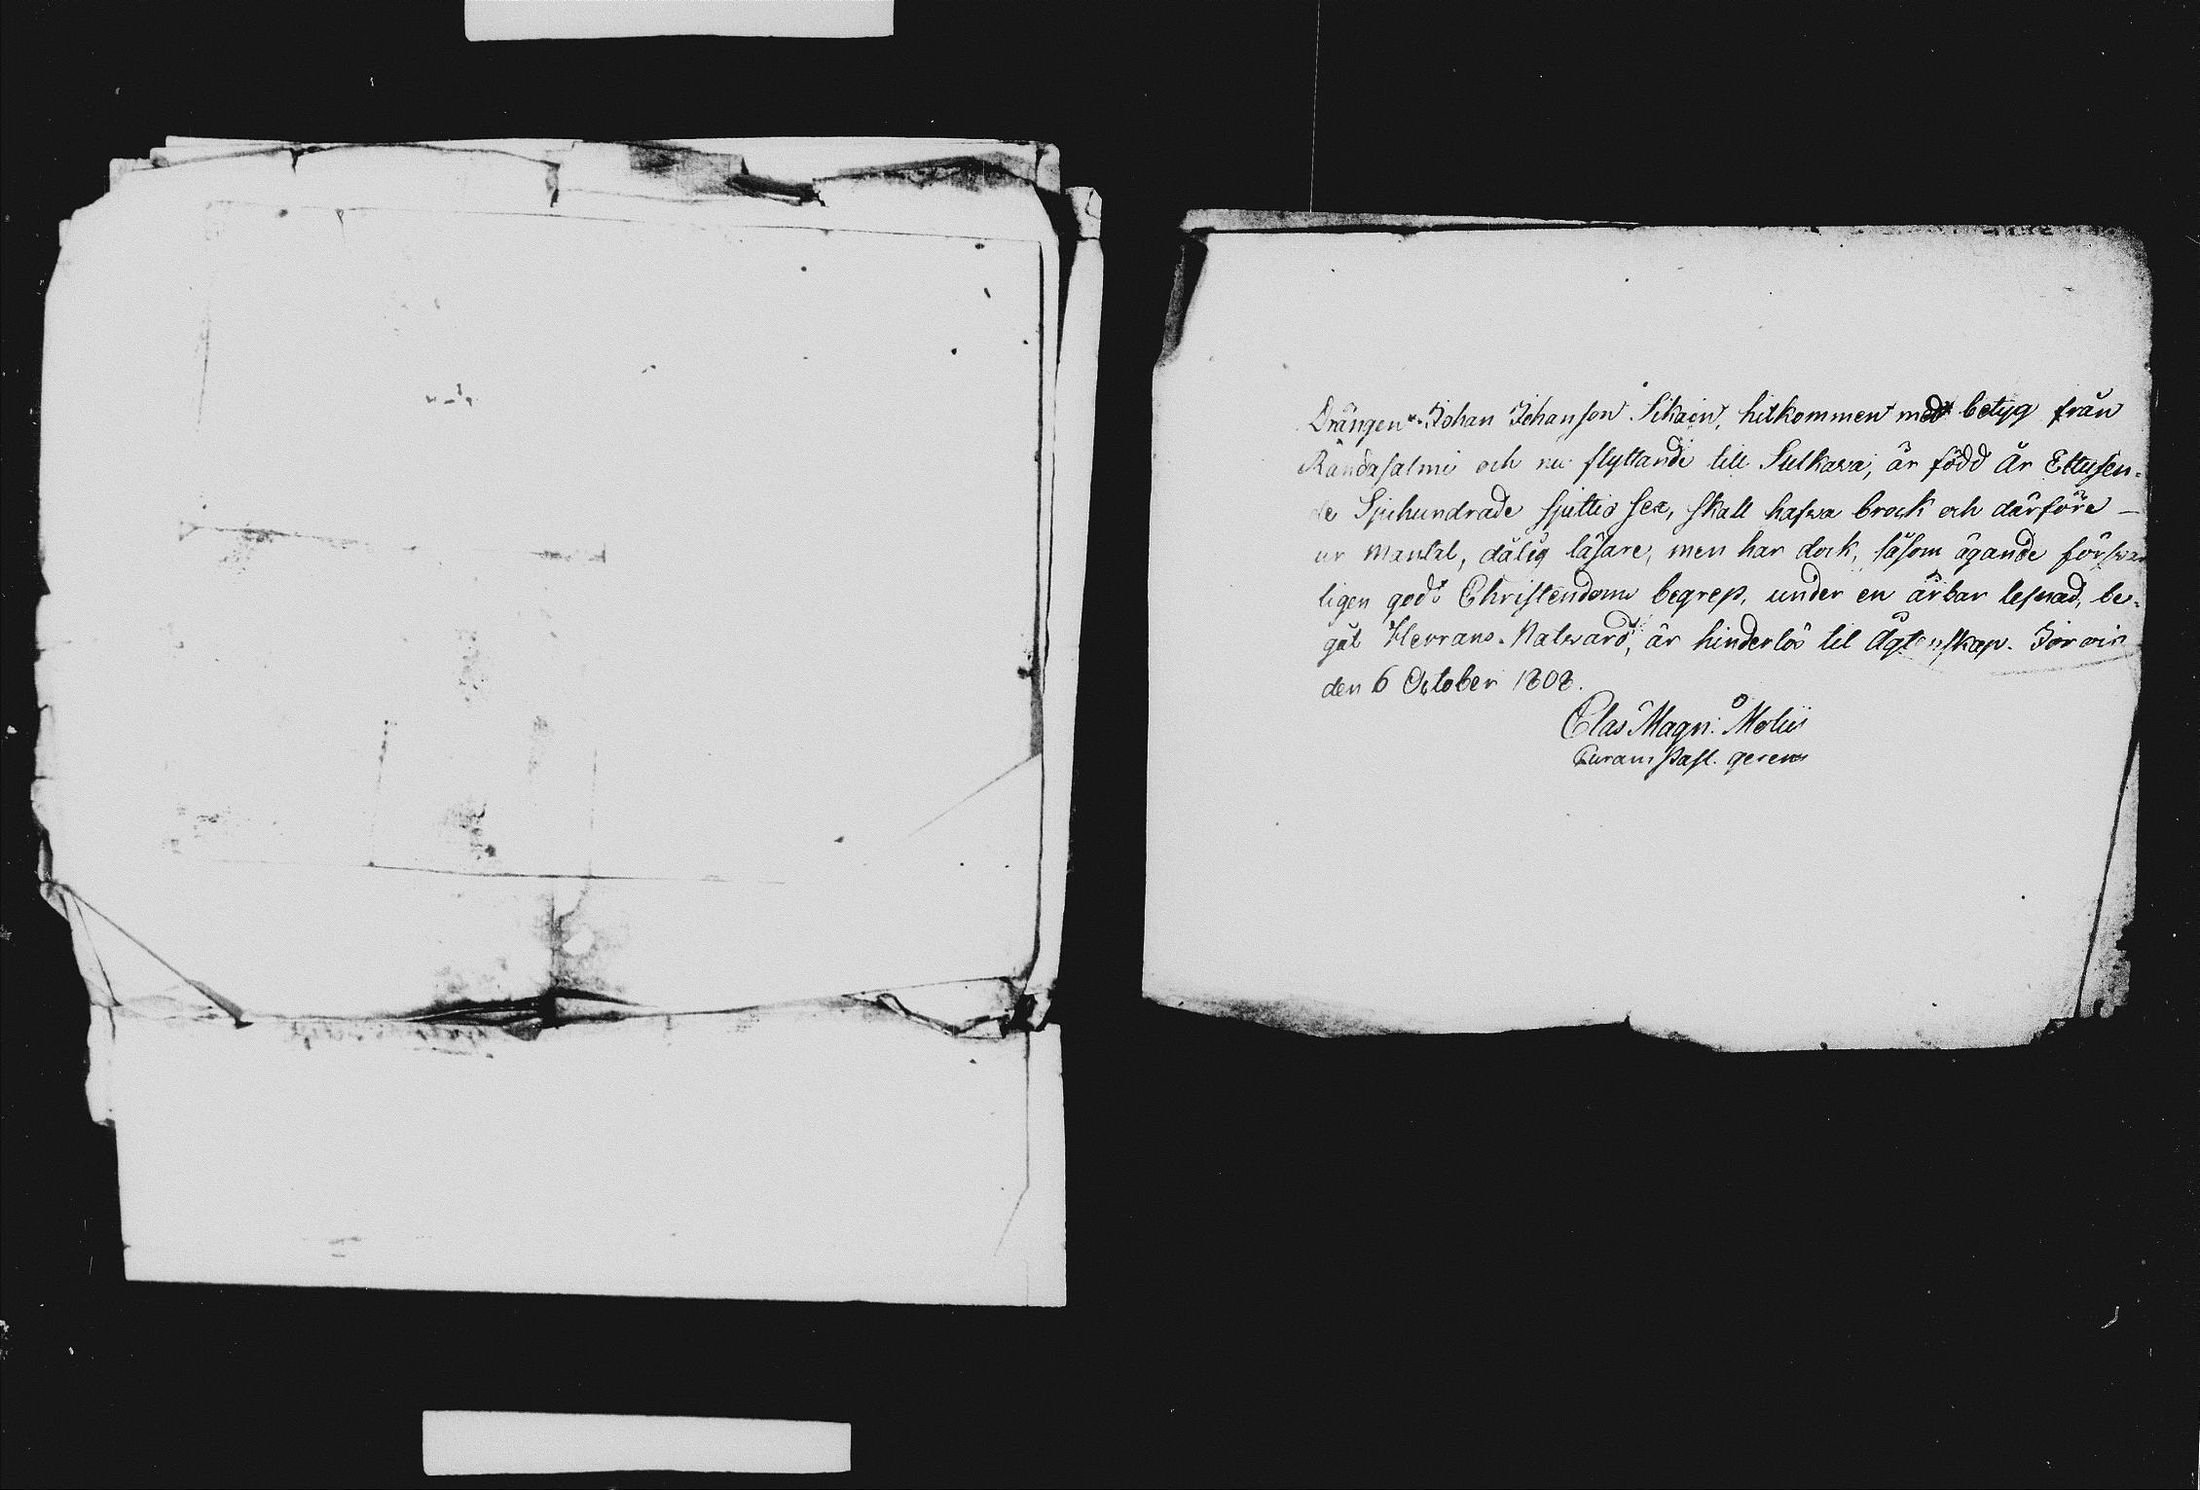 Drängen Johan Johansson Sikain, hitkommen med betyg från
Randasalmi och nu flyttande till Sulkava, är född År Ettusen-
de Sjuhundrade sjuttio sex, skall hafwa brock och därföre –
ur mantal, dålig läsare, men har dock, såsom ägande förswar
ligen godt Christendoms begrep, under en ärbar lefnad, be-
gåt Herrans Natward, är hinderlös til Ägtenskap. Jorois
den 6 October 1808.
Clas Magn: Molin
Curam Past. gerens